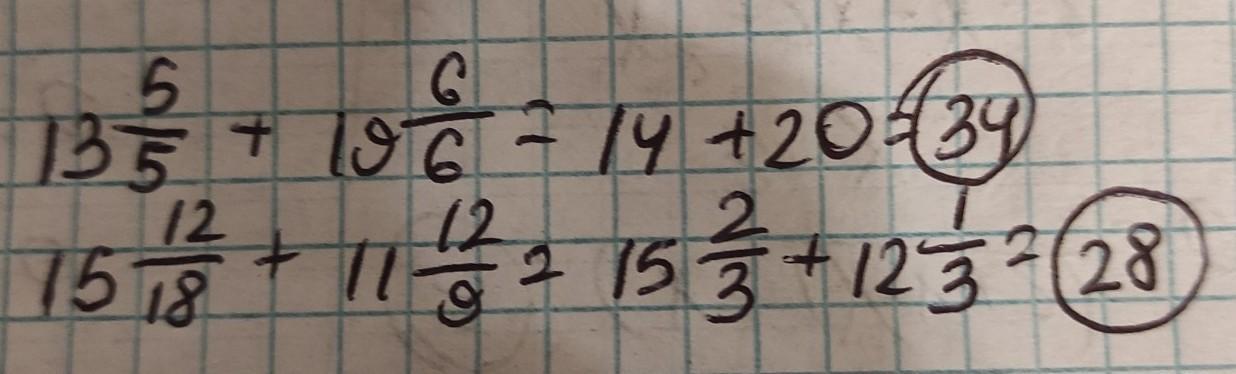 13 5/5 + 19 6/6 = 14 + 20 = 34
15 12/18 + 11 12/9 = 15 2/3 + 12 1/3 = 28